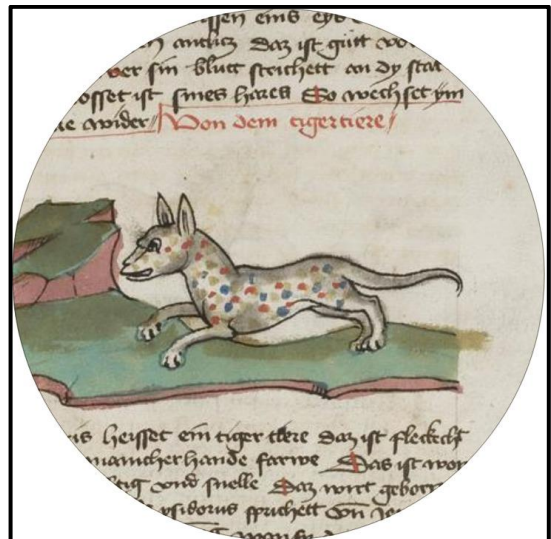 ssen eins eyb
antlicz Daz ist gůtt vo
ver sin blutt streichett an dy stat
osset ist sines hares So wechset ym
ne wider Von dem tigertiere
is heisset ein tiger tiere daz ist fleckcht
mancherhande farwe Das ist wor
tig vnd snelle Daz wirt geborn
ysidorus sprichett Vn